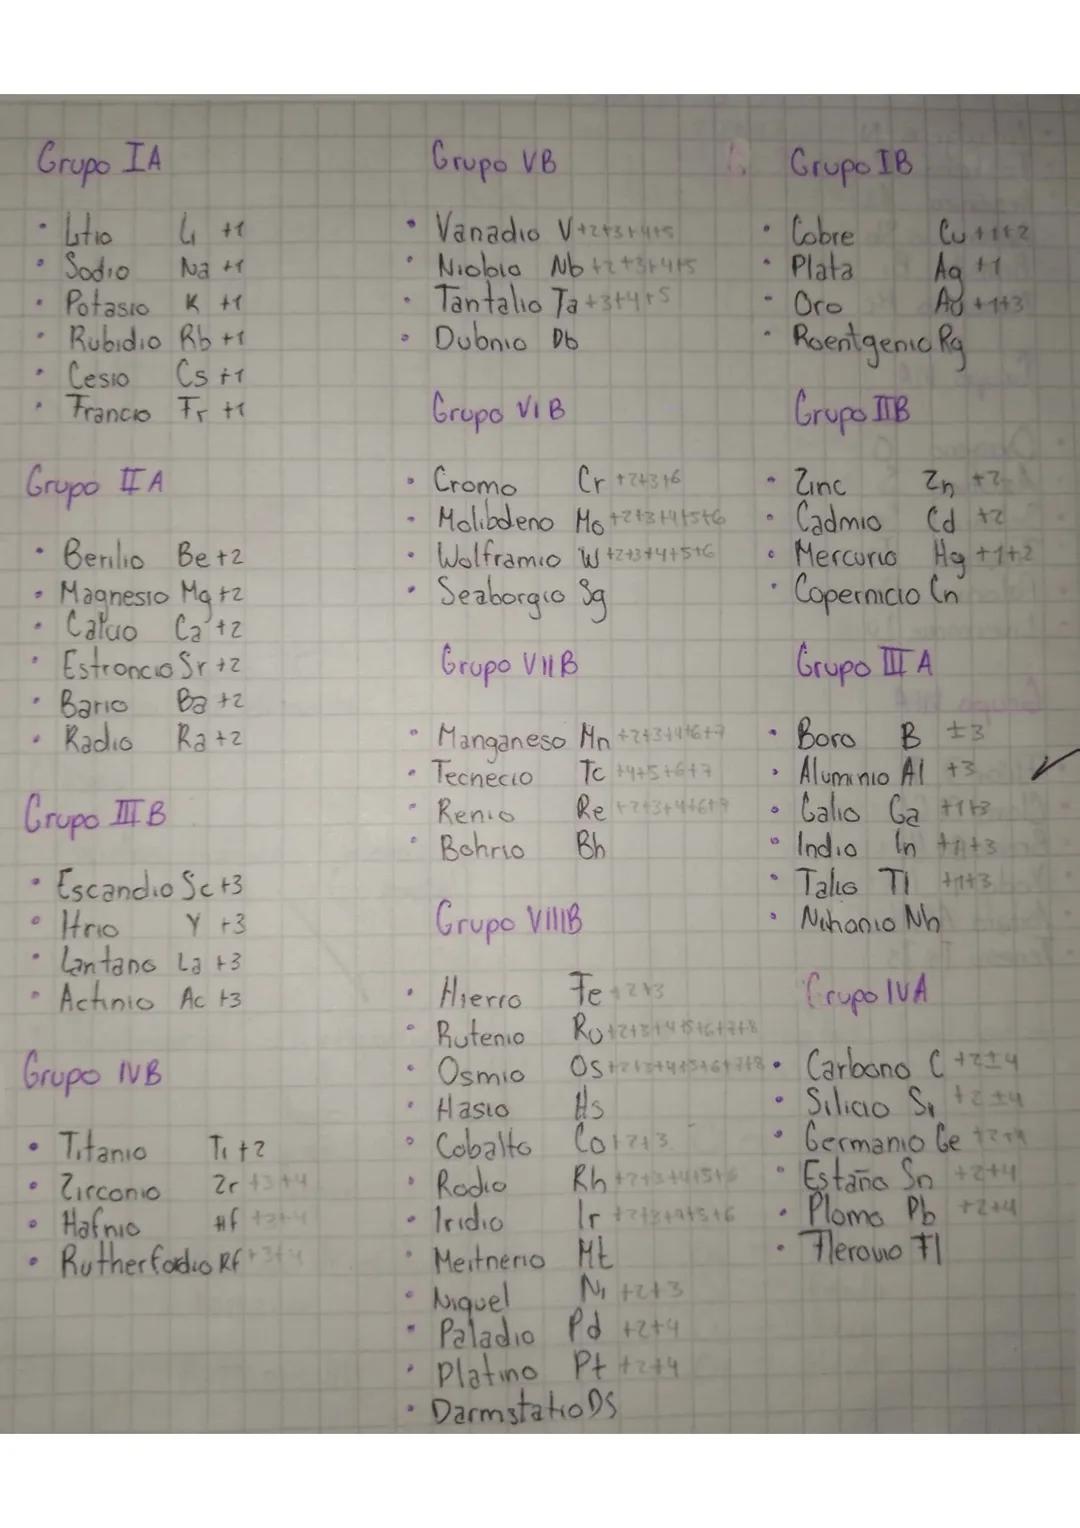 Grupo IA
• Litio Li +1
• Sodio Na +1
• Potasio K +1
• Rubidio Rb +1
• Cesio Cs +1
• Francio Fr +1
Grupo II A
• Berilio Be +2
• Magnesio Mg +2
• Calcio Ca +2
• Estroncio Sr +2
• Bario Ba +2
• Radio Ra +2
Grupo III B
• Escandio Sc +3
• Itrio Y +3
• Lantano La +3
• Actinio Ac +3
Grupo IVB
• Titanio Ti +2
• Zirconio Zr +3+4
• Hafnio Hf +3+4
• Rutherfordio Rf +3+4
Grupo VB
• Vanadio V +2+3+4+5
• Niobio Nb +2+3+4+5
• Tantalio Ta +3+4+5
• Dubnio Db
Grupo VI B
• Cromo Cr +2+3+6
• Molibdeno Mo +2+3+4+5+6
• Wolframio W +2+3+4+5+6
• Seaborgio Sg
Grupo VIIB
• Manganeso Mn +2+3+4+6+7
• Tecnecio Tc +4+5+6+7
• Renio Re
• Bohrio Bh
Grupo VIIIB
• Hierro Fe +2+3
• Rutenio Ru +2+3+4+5+6+7+8
• Osmio Os +2+3+4+5+6+7+8
• Hasio Hs
• Cobalto Co +2+3
• Rodio Rh +2+3+4+5+6
• Iridio Ir +2+3+4+5+6
• Meitnerio Mt
• Niquel Ni +2+3
• Paladio Pd +2+4
• Platino Pt +2+4
• Darmstatio DS
Grupo IB
• Cobre Cu +1+2
• Plata Ag +1
• Oro Au +1+3
• Roentgenio Rg
Grupo IIB
• Zinc Zn +2
• Cadmio Cd +2
• Mercurio Hg +1+2
• Copernicio Cn
Grupo III A
• Boro B ±3
• Aluminio Al +3
• Galio Ga +1+3
• Indio In +1+3
• Talio Tl +1+3
• Nihonio Nh
Grupo IVA
• Carbono C +2±4
• Silicio Si +2±4
• Germanio Ge
• Estaño Sn +2+4
• Plomo Pb +2+4
• Flerovio Fl